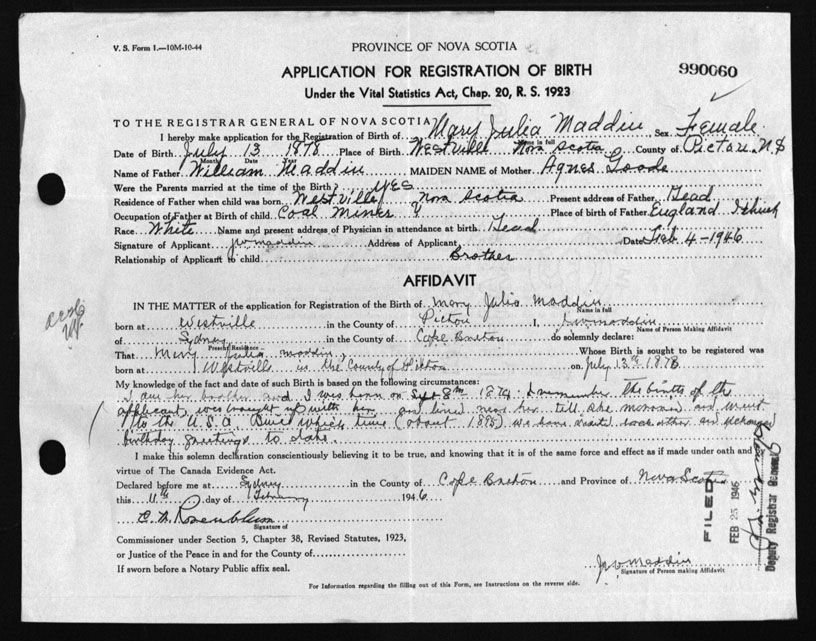 V. S. Form 1.—10M-10-44
PROVINCE OF NOVA SCOTIA
APPLICATION FOR REGISTRATION OF BIRTH
990060
Under the Vital Statistics Act, Chap. 20, R. S. 1923
TO THE REGISTRAR GENERAL OF NOVA SCOTIA
I hereby make application for the Registration of Birth of Mary Julia Maddin Sex Female
Name in full
Date of Birth July 13 1878 Place of Birth Westville Nova Scotia County of Pictou N S
Month Date Year
Name of Father William Maddin MAIDEN NAME of Mother Agnes
Were the Parents married at the time of the Birth? YES
Residence of Father when child was born Westville Nova Scotia Present address of Father Dead
Occupation of Father at Birth of child Coal Miner Place of birth of Father England
Race White Name and present address of Physician in attendance at birth Dead
Signature of Applicant J W Maddin Address of Applicant Date Feb 4-1946
Relationship of Applicant to child Brother
AFFIDAVIT
IN THE MATTER of the application for Registration of the Birth of Mary Julia Maddin
Name in full
born at Westville in the County of Pictou I, J W Maddin
Name of Person Making Affidavit
of Sydney in the County of Cape Breton do solemnly declare:
Present Residence
That Mary Julia Maddin, Whose Birth is sought to be registered was
born at Westville in the County of Pictou on July 13th 1878
My knowledge of the fact and date of such Birth is based on the following circumstances:
I am her brother and I was born on Sept 8th I remember the births of the
applicant, was brought up with her, and lived near her till she married and went
to the U.S.A. Since which time (about 1895) we have each other and
birthday greetings to date.
I make this solemn declaration conscientiously believing it to be true, and knowing that it is of the same force and effect as if made under oath and by
virtue of The Canada Evidence Act.
Declared before me at Sydney in the County of Cape Breton and Province of Nova Scotia
this 11th day of February 1946
C. M. Rosenblum
Signature of
Commissioner under Section 5, Chapter 38, Revised Statutes, 1923,
or Justice of the Peace in and for the County of
If sworn before a Notary Public affix seal.
J W Maddin
Signature of Person making Affidavit
For Information regarding the filling out of this Form, see Instructions on the reverse side.
FILED
FEB 25 1946
Deputy Registrar General